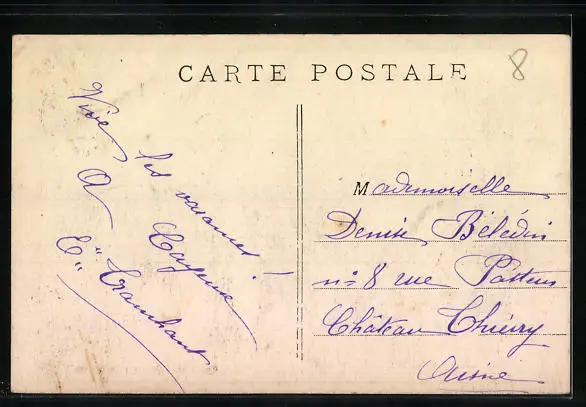 CARTE POSTALE
8
Vive les vacances !
A Cayeux
E. Tranchant
Mademoiselle
Denise Bélédin
n° 8 rue Pasteur
Château Thierry
Aisne